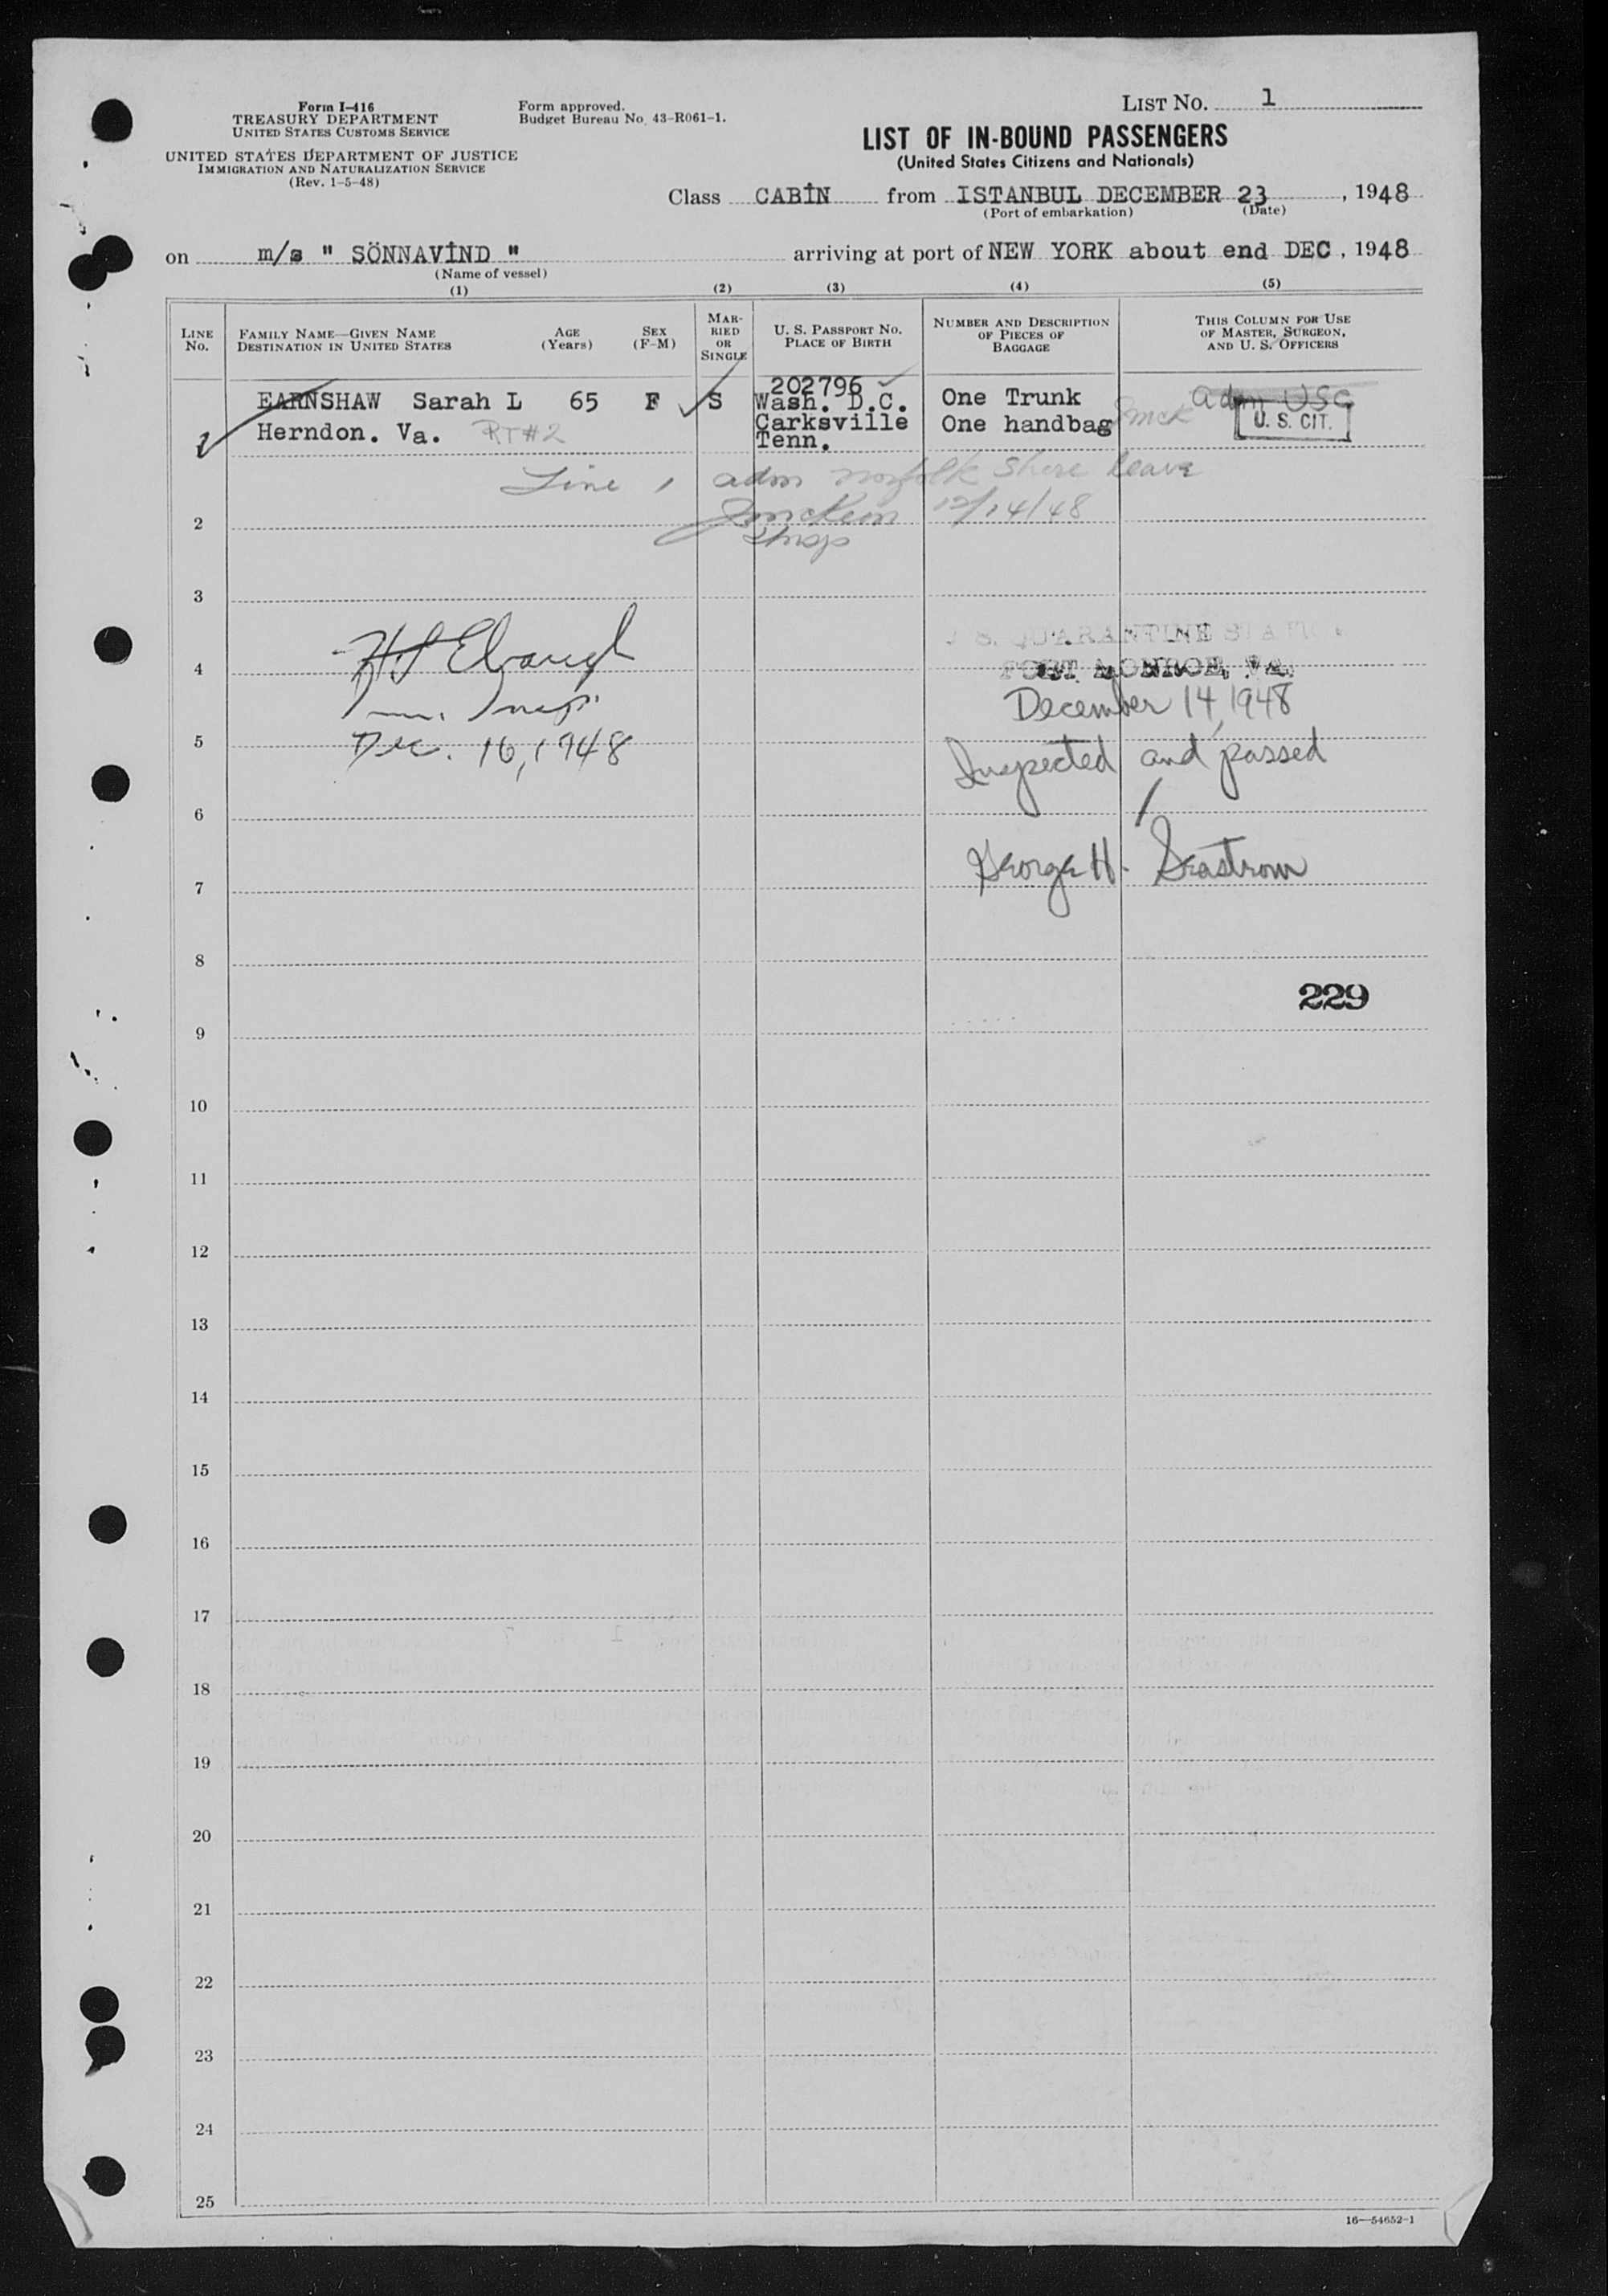 Form I-416
TREASURY DEPARTMENT
UNITED STATES CUSTOMS SERVICE
UNITED STATES DEPARTMENT OF JUSTICE
IMMIGRATION AND NATURALIZATION SERVICE
(Rev. 1-5-48)
Form approved.
Budget Bureau No. 43-R061-1.
LIST NO. 1
LIST OF IN-BOUND PASSENGERS
(United States Citizens and Nationals)
Class CABİN from ISTANBUL DECEMBER 23, 1948
(Port of embarkation) (Date)
on m/s " SÖNNAVİND " arriving at port of NEW YORK about end DEC, 1948
(Name of vessel)
(1) (2) (3) (4) (5)
LINE NO.
FAMILY NAME—GIVEN NAME
DESTINATION IN UNITED STATES
AGE (Years)
SEX (F-M)
MARRIED OR SINGLE
U. S. PASSPORT NO.
PLACE OF BIRTH
NUMBER AND DESCRIPTION
OF PIECES OF
BAGGAGE
THIS COLUMN FOR USE
OF MASTER, SURGEON,
AND U. S. OFFICERS
1 EARNSHAW Sarah L 65 F S
Herndon. Va. RT#2
202796
Wash. D.C.
Carksville
Tenn.
One Trunk
One handbag
adm USC
U. S. CIT.
Line 1 adm norfolk shore leave
12/14/48
Insp
2
3
H Elbaugh
Imm. Insp.
Dec. 16, 1948
U.S. QUARANTINE STATION
FORT MONROE, VA.
December 14, 1948
Inspected and passed
George H. Seastrom
4
5
6
7
8
229
9
10
11
12
13
14
15
16
17
18
19
20
21
22
23
24
25
16—54652-1